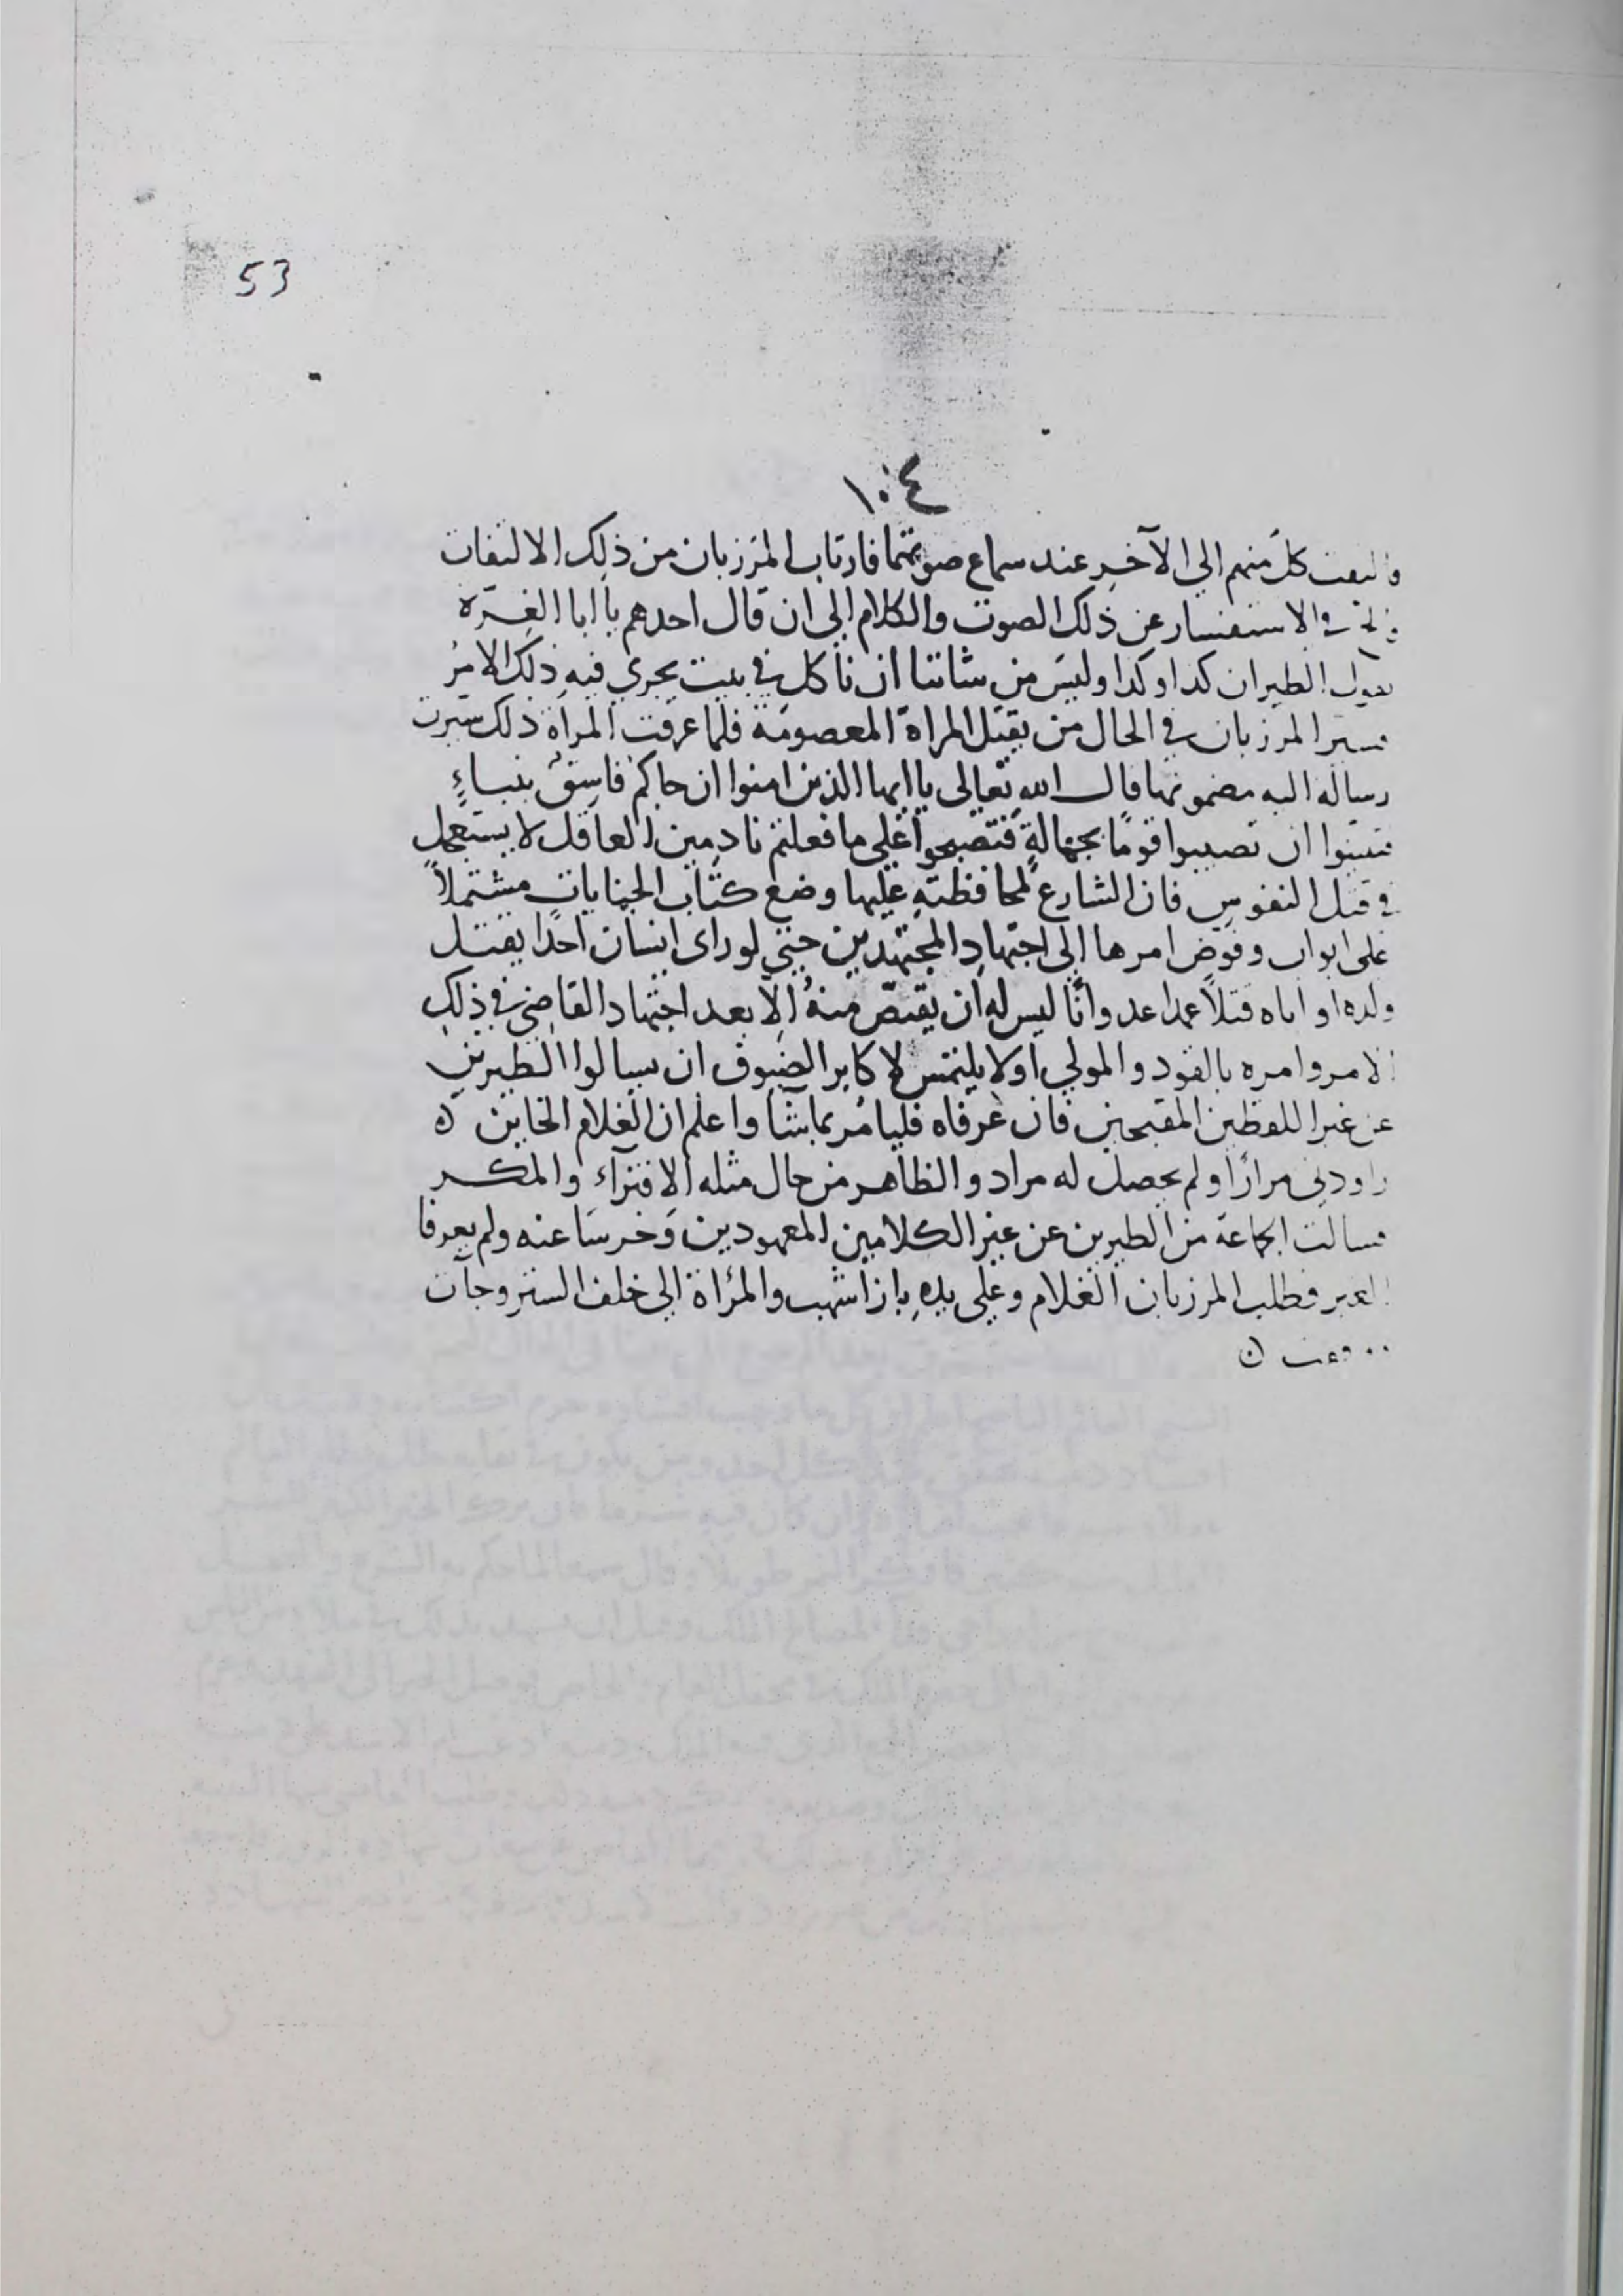 53
١٠٤
والتفت كل منهم الي الآخر عند سماع صوتهما فارتاب المرزبان من ذلك الالتفات
في الاستفسار عن ذلك الصوت والكلام الى ان قال احدهم يا ابا الغرة
يقول الطيران كدا وكدا وليس من شاننا ان ناكل في بيت يجري فيه ذلك الامر
فسير المرزبان في الحال من يقتل المراة المعصومة فلما عرفت المراة ذلك سيرت
رسالة اليه مضمونها قال الله تعالى يا ايها الذين امنوا ان جاكم فاسق بنباءٍ
فتبينوا ان تصيبوا قومًا بجهالةٍ فتصبحوا على ما فعلتم نادمين العاقل لا يستعجل
في قتل النفوس فان الشارع لمحافظته عليها وضع كتاب الجنايات مشتملاً
على ابواب وفوض امرها الى اجتهاد المجتهدين حتي لو راى انسان احدًا يقتل
ولده او اباه قتلاً عمدا عدوانًا ليس له ان يقتص منهُ الا بعد اجتهاد القاضي في ذلك
الامر وامره بالقود والمولي اولا يلتمس لاكابر الضيوف ان يسالوا الطيرين
عن غير اللفظين المقبحين فان عرفاه فليامر بما شا واعلم ان الغلام الخاين ه
راودني مرارًا ولم يحصل له مراد والظاهر من حال مثله الافتراء والمكر
فسالت الجماعة من الطيرين عن غير الكلامين المعهودين وخرسا عنه ولم يعرفا
الغير فطلب المرزبان الغلام وعلي يدهِ باز اشهب والمرأة الى خلف الستر وجات